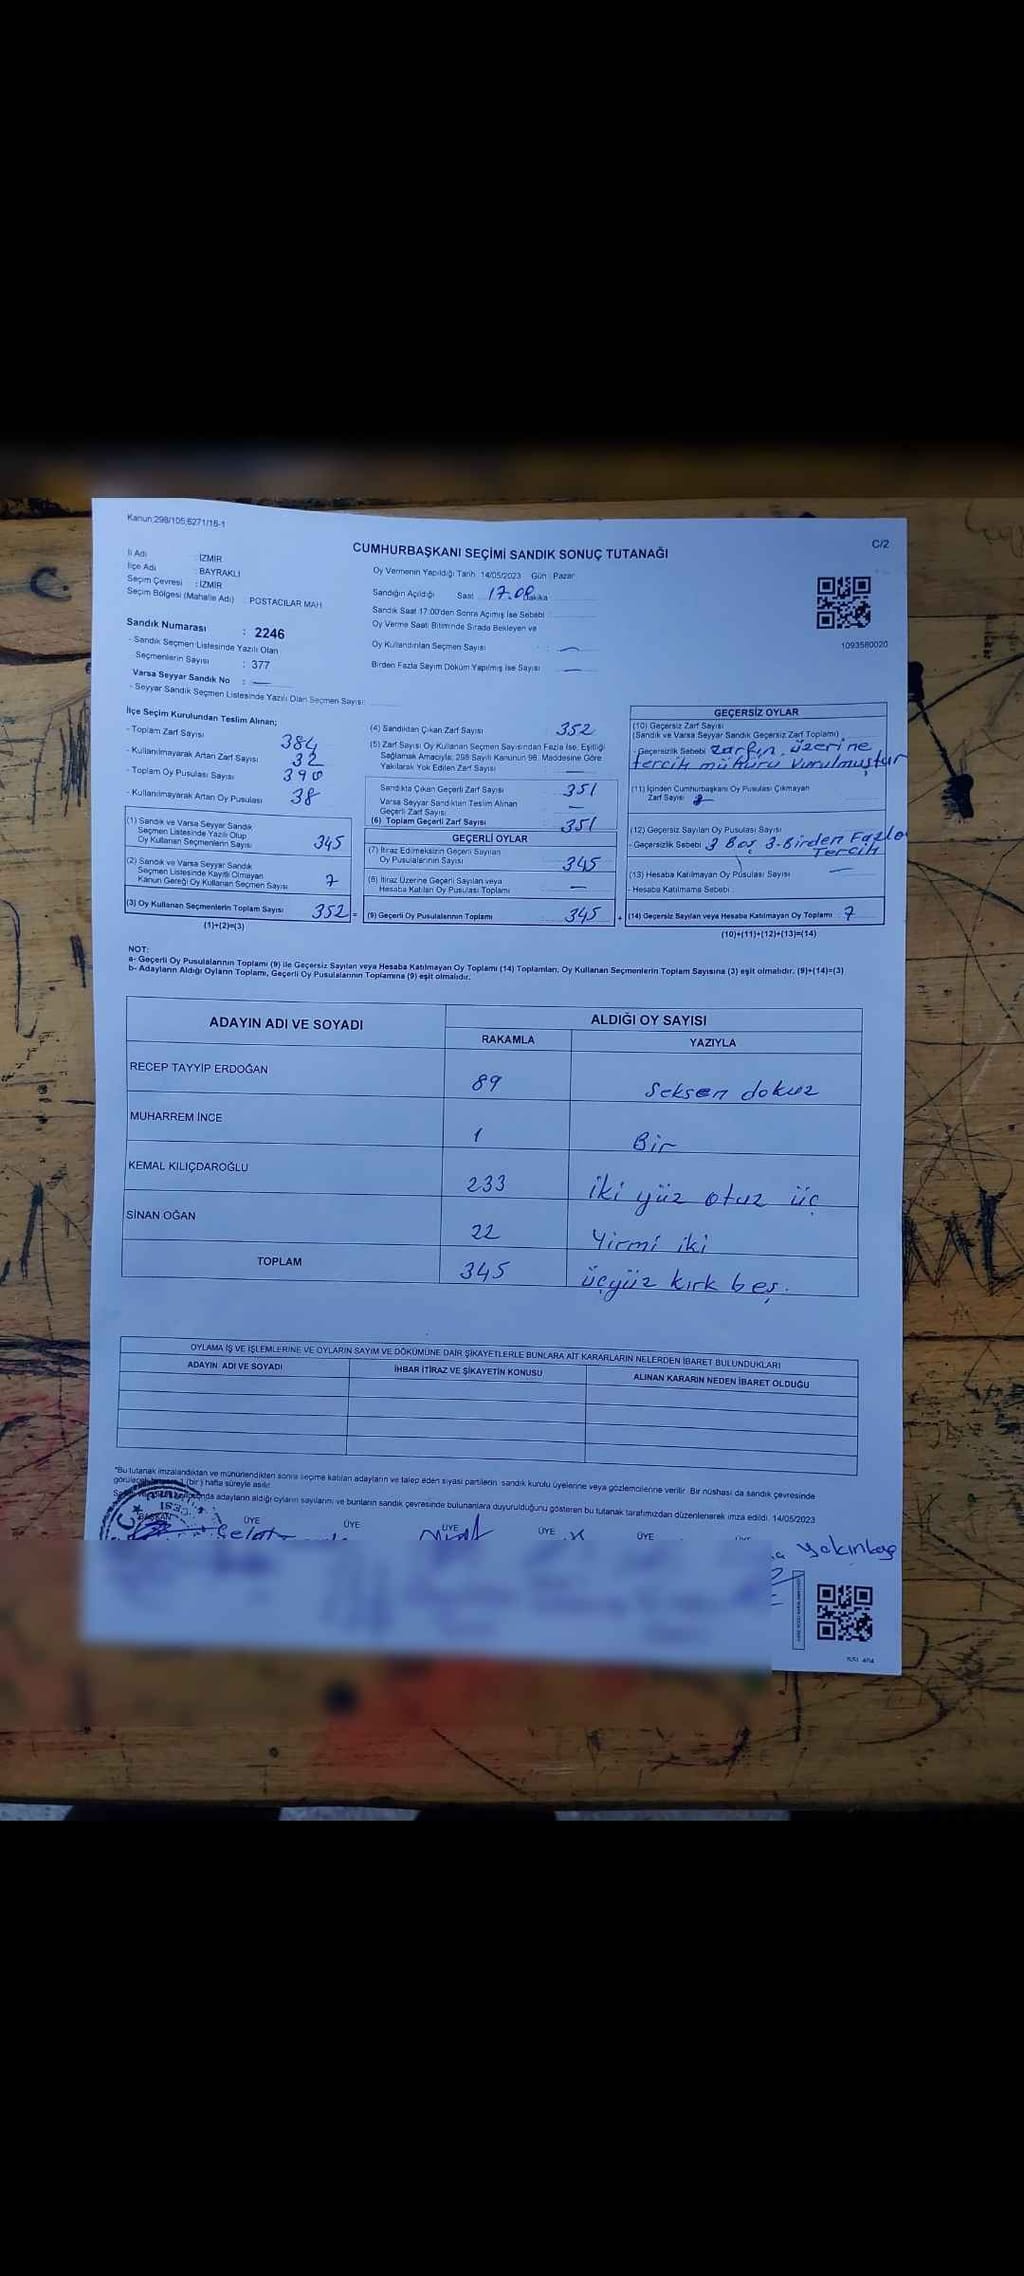 Kanun:298/105;6271/16-1
C/2
CUMHURBAŞKANI SEÇİMİ SANDIK SONUÇ TUTANAĞI
İl Adı : İZMİR
İlçe Adı : BAYRAKLI
Seçim Çevresi : İZMİR
Seçim Bölgesi (Mahalle Adı) : POSTACILAR MAH.
Sandık Numarası : 2246
- Sandık Seçmen Listesinde Yazılı Olan
Seçmenlerin Sayısı : 377
Varsa Seyyar Sandık No : —
- Seyyar Sandık Seçmen Listesinde Yazılı Olan Seçmen Sayısı:
Oy Vermenin Yapıldığı Tarih: 14/05/2023 Gün: Pazar
Sandığın Açıldığı Saat 17.00 Dakika
Sandık Saat 17:00'den Sonra Açılmış İse Sebebi
Oy Verme Saati Bitiminde Sırada Bekleyen ve
Oy Kullandırılan Seçmen Sayısı : —
Birden Fazla Sayım Döküm Yapılmış İse Sayısı : —
1093580020
İlçe Seçim Kurulundan Teslim Alınan;
- Toplam Zarf Sayısı 384
- Kullanılmayarak Artan Zarf Sayısı 32
- Toplam Oy Pusulası Sayısı 390
- Kullanılmayarak Artan Oy Pusulası 38
(1) Sandık ve Varsa Seyyar Sandık
Seçmen Listesinde Yazılı Olup
Oy Kullanan Seçmenlerin Sayısı 345
(2) Sandık ve Varsa Seyyar Sandık
Seçmen Listesinde Kayıtlı Olmayan
Kanun Gereği Oy Kullanan Seçmen Sayısı 7
(3) Oy Kullanan Seçmenlerin Toplam Sayısı 352 =
(1)+(2)=(3)
(4) Sandıktan Çıkan Zarf Sayısı 352
(5) Zarf Sayısı Oy Kullanan Seçmen Sayısından Fazla İse, Eşitliği
Sağlamak Amacıyla; 298 Sayılı Kanunun 98. Maddesine Göre
Yakılarak Yok Edilen Zarf Sayısı —
Sandıkta Çıkan Geçerli Zarf Sayısı 351
Varsa Seyyar Sandıktan Teslim Alınan
Geçerli Zarf Sayısı —
(6) Toplam Geçerli Zarf Sayısı 351
GEÇERLİ OYLAR
(7) İtiraz Edilmeksizin Geçerli Sayılan
Oy Pusulalarının Sayısı 345
(8) İtiraz Üzerine Geçerli Sayılan veya
Hesaba Katılan Oy Pusulası Toplamı —
(9) Geçerli Oy Pusulalarının Toplamı 345 +
GEÇERSİZ OYLAR
(10) Geçersiz Zarf Sayısı
(Sandık ve Varsa Seyyar Sandık Geçersiz Zarf Toplamı)
- Geçersizlik Sebebi zarfın üzerine
tercih mührü vurulmuştur
(11) İçinden Cumhurbaşkanı Oy Pusulası Çıkmayan
Zarf Sayısı
(12) Geçersiz Sayılan Oy Pusulası Sayısı
- Geçersizlik Sebebi 3 Boş 3-Birden Fazla
Tercih
(13) Hesaba Katılmayan Oy Pusulası Sayısı —
- Hesaba Katılmama Sebebi :
(14) Geçersiz Sayılan veya Hesaba Katılmayan Oy Toplamı 7
(10)+(11)+(12)+(13)=(14)
NOT:
a- Geçerli Oy Pusulalarının Toplamı (9) ile Geçersiz Sayılan veya Hesaba Katılmayan Oy Toplamı (14) Toplamları, Oy Kullanan Seçmenlerin Toplam Sayısına (3) eşit olmalıdır. (9)+(14)=(3)
b- Adayların Aldığı Oyların Toplamı, Geçerli Oy Pusulalarının Toplamına (9) eşit olmalıdır.
ADAYIN ADI VE SOYADI ALDIĞI OY SAYISI
RAKAMLA YAZIYLA
RECEP TAYYİP ERDOĞAN 89 Seksen dokuz
MUHARREM İNCE 1 Bir
KEMAL KILIÇDAROĞLU 233 iki yüz otuz üç
SİNAN OĞAN 22 Yirmi iki
TOPLAM 345 üçyüz kırk beş.
OYLAMA İŞ VE İŞLEMLERİNE VE OYLARIN SAYIM VE DÖKÜMÜNE DAİR ŞİKAYETLERLE BUNLARA AİT KARARLARIN NELERDEN İBARET BULUNDUKLARI
ADAYIN ADI VE SOYADI İHBAR İTİRAZ VE ŞİKAYETİN KONUSU ALINAN KARARIN NEDEN İBARET OLDUĞU
*Bu tutanak imzalandıktan ve mühürlendikten sonra seçime katılan adayların ve talep eden siyasi partilerin sandık kurulu üyelerine veya gözlemcilerine verilir. Bir nüshası da sandık çevresinde
(bir) hafta süreyle asılır.
adayların aldığı oyların sayılarını ve bunların sandık çevresinde bulunanlara duyurulduğunu gösteren bu tutanak tarafımızdan düzenlenerek imza edildi. 14/05/2023
BAŞKAN ÜYE ÜYE ÜYE ÜYE ÜYE